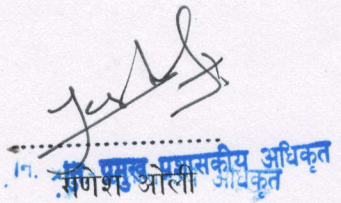 नि. प्रमुख प्रशासकीय अधिकृत
गणेश ओली अधिकृत